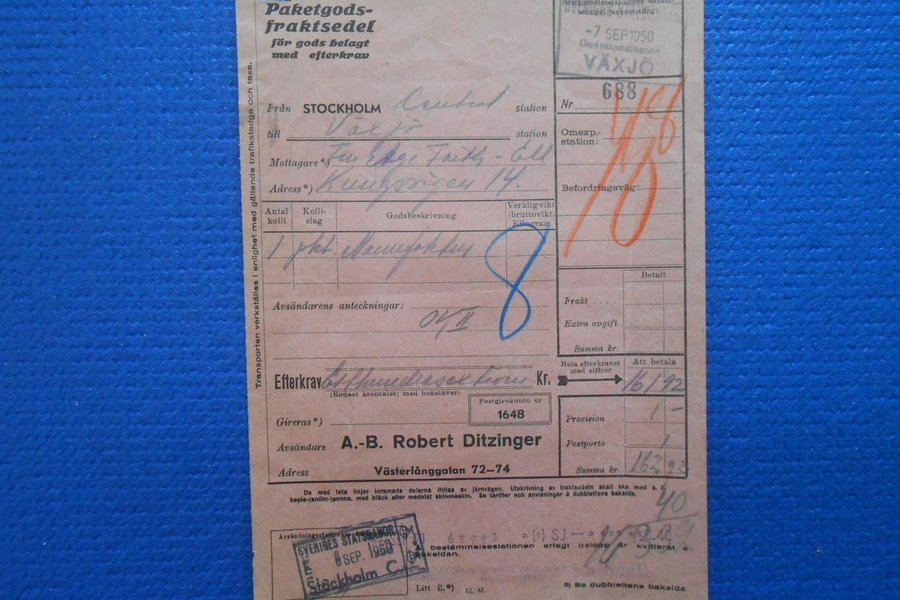 Paketgods-
fraktsedel
för gods belagt
med efterkrav
-7 SEP 1950
Godsexpeditionen
VÄXJÖ
Nr 688
Från STOCKHOLM Central station
till Växjö station
Omexp.-
station:
Mottagare*)
Adress*) Kungsvägen 14.
Befordringsväg:
Antal
kolli
Kolli-
slag
Godsbeskrivning
Verklig vikt
(bruttovikt)
Kilogram
1 pkt. Manufaktur
8
Avsändarens anteckningar:
Betalt
Frakt . . . .
Extra avgift .
Summa kr.
Hela efterkravet
med siffror
Att betala
Efterkrav Etthundrasextioen Kr. 161 92
(Endast krontalet; med bokstäver)
Postgirokonto nr
1648
Gireras*)
Provision . 1 -
Avsändare A.-B. Robert Ditzinger
Postporto .
Adress Västerlånggatan 72-74
Summa kr. 162,92
De med feta linjer inramade delarna ifyllas av järnvägen. Utskrivning av fraktsedeln skall ske med
kopie-(anilin-)penna, med bläck eller medelst skrivmaskin. Se tariffer och anvisningar å dubblettens baksida.
40
SVERIGES STATSBANOR
6 SEP. 1950
Stockholm C.
bestämmelsestationen erlagt belopp är kvitterat å
baksidan.
Litt C.*) 12. 47.
*) Se dubblettens baksida
Transporten verkställes i enlighet med gällande trafikstadga och taxa.